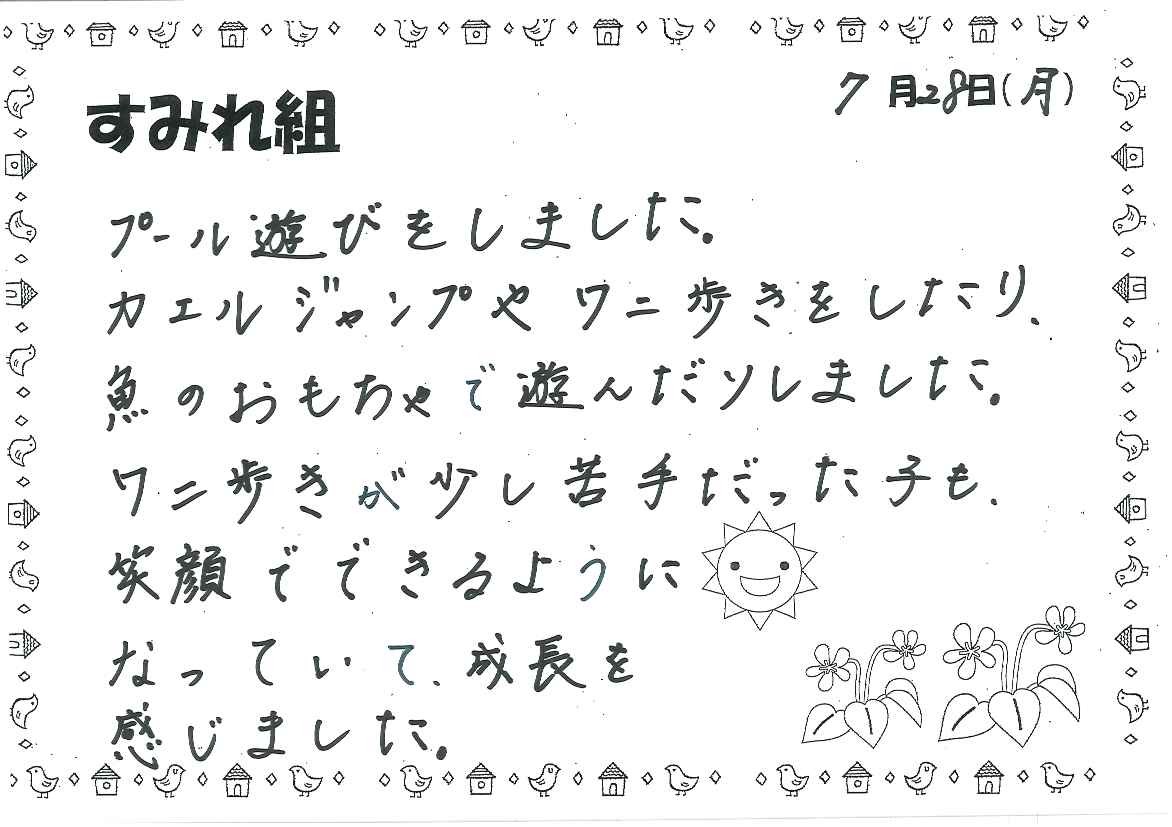 7月28日(月)
すみれ組
プール遊びをしました。
カエルジャンプやワニ歩きをしたり、
魚のおもちゃで遊んだりしました。
ワニ歩きが少し苦手だった子も、
笑顔でできるように
なっていて、成長を
感じました。